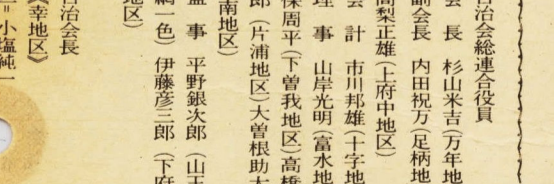 自治会総連合役員
会　長　杉山米吉(万年地
副会長　内田祝万(足柄地
高梨正雄(上府中地区)
会　計　市川邦雄(十字地
理　事　山岸光明(富水地
保周平(下曽我地区)高橋
郎(片浦地区)大曽根助太
南地区)
監　事　平野銀次郎(山王
網一色)伊藤彦三郎(下府
地区)
自治会長
幸地区》
二＝小塩純一